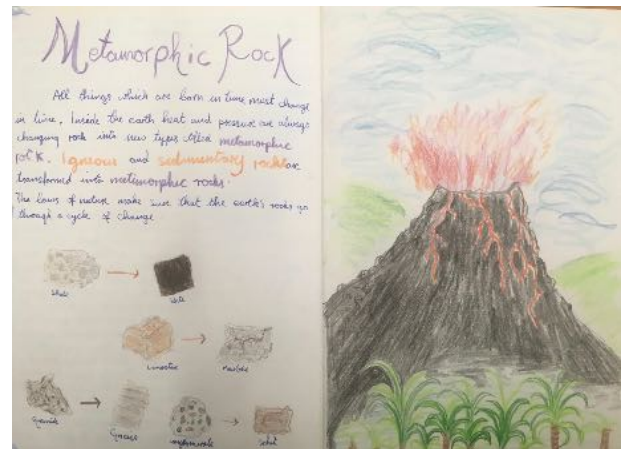 Metamorphic Rock
All things which are born in time must change
in time. Inside the earth heat and pressure are always
changing rock into new types called metamorphic
rock. Igneous and sedimentary rocks are
transformed into metamorphic rocks.
The laws of nature make sure that the earth's rocks go
through a cycle of change
Shale
Slate
Limestone
Marble
Granite
Gneiss
Schist